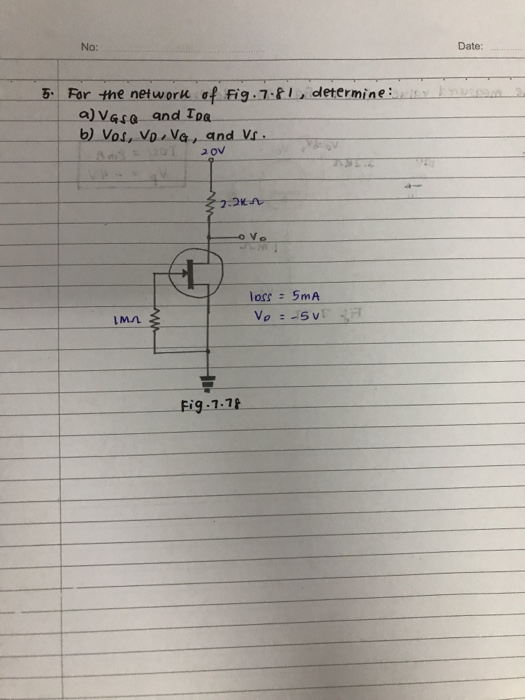 No:
Date:
5. For the network of Fig.7.81, determine:
a) VGSQ and IDQ
b) VDS, VD, VG, and VS.
20V
2.2KΩ
VD
1MΩ
IDSS = 5mA
VP = -5V
Fig.7.78